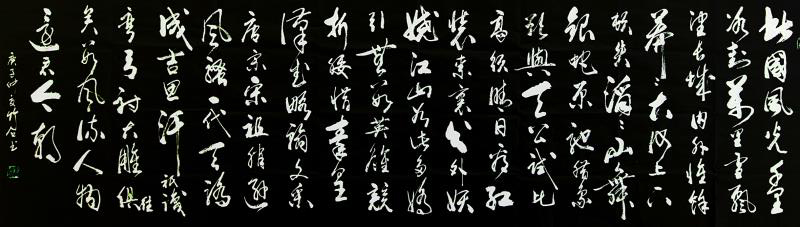 北國風光千里
冰封萬里雪飄
望長城內外惟餘
莽莽大河上下
頓失滔滔山舞
銀蛇原馳蠟象
欲與天公試比
高須晴日看紅
裝素裹分外妖
嬈江山如此多嬌
引無數英雄競
折腰惜秦皇
漢武略輸文采
唐宗宋祖稍遜
風騷一代天驕
成吉思汗祇識
彎弓射大雕俱往
矣數風流人物
還看今朝
庚子四月